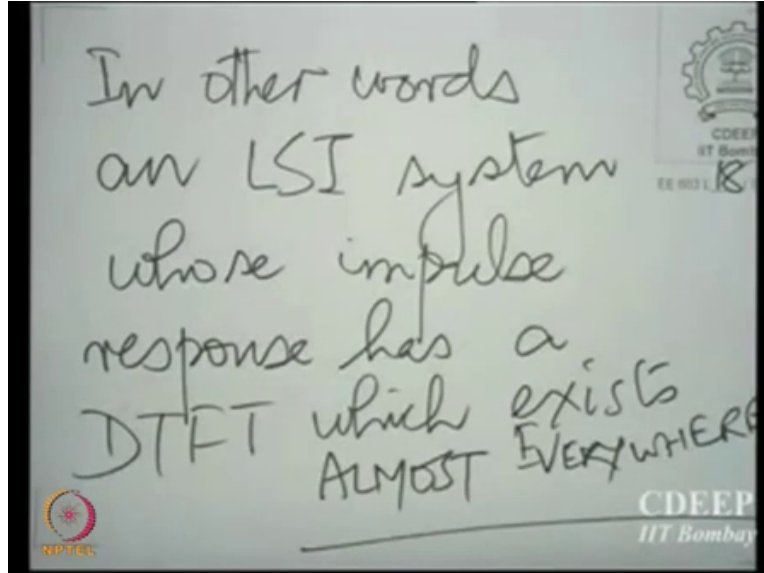 In other words
an LSI system
whose impulse
response has a
DTFT which exists
ALMOST EVERYWHERE
CDEEP
IIT Bomb
EE 603 L 18
NPTEL
CDEEP
IIT Bombay